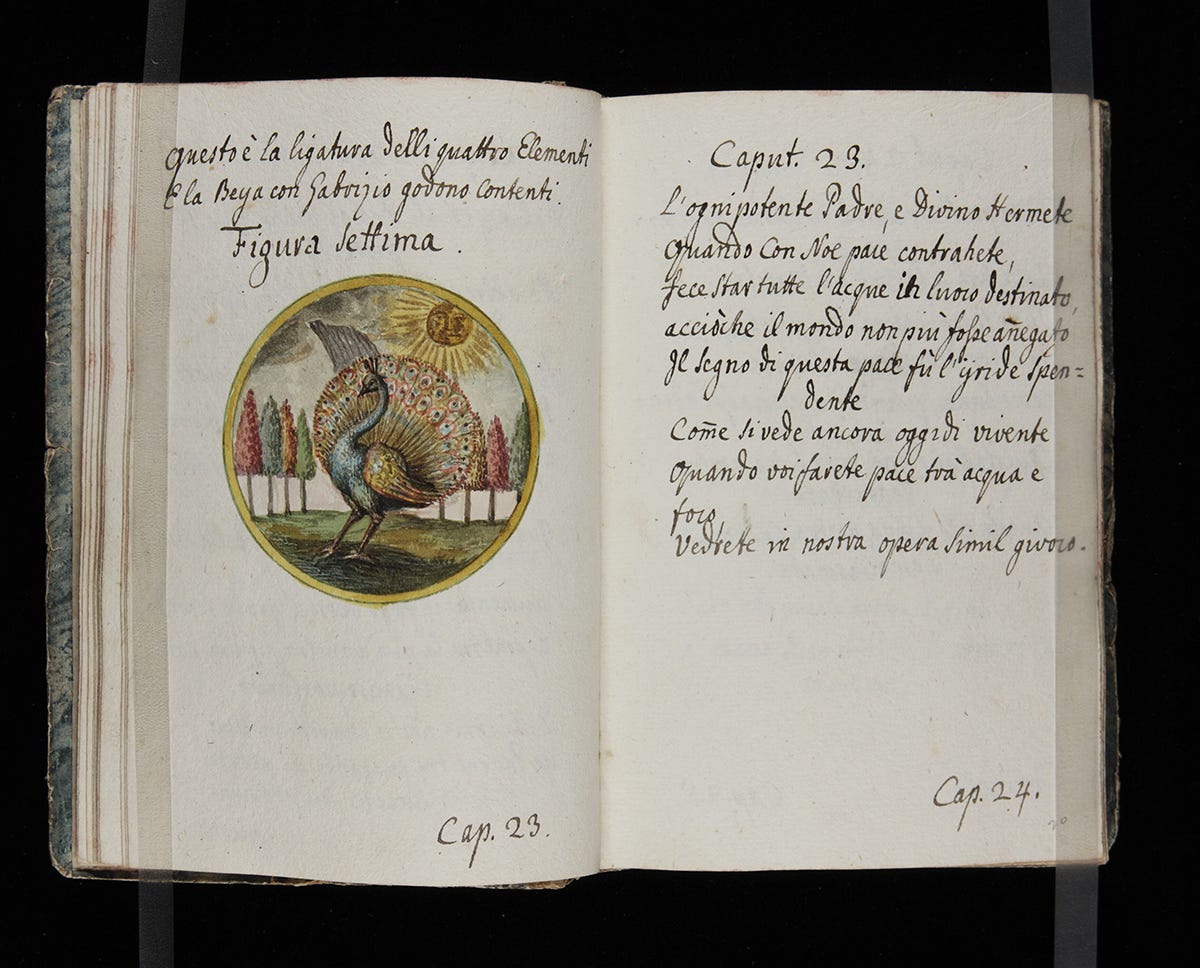 Questo è la ligatura delli quattro Elementi
E la Beya con Gabrizio godono Contenti.
Figura Settima.
Cap. 23.
Caput. 23.
L'ognipotente Padre, e Divino Hermete
Quando Con Noe pace contrahete,
fece star tutte l'acque in luoco destinato,
acciòche il mondo non più fosse añegato
Il segno di questa pace fù l'ÿride spen=
dente
Com̃e si vede ancora oggidi vivente
Quando voi farete pace trà acqua e
foco,
Vedrete in nostra opera simil givoco.
Cap. 24.